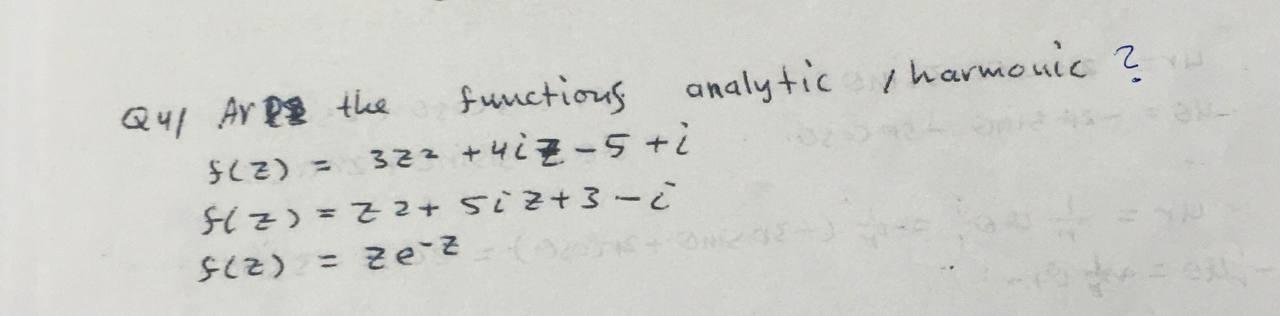 Q4/ Are the functions analytic / harmonic ?
f(z) = 3z² + 4iz - 5 + i
f(z) = z2 + 5iz + 3 - i
f(z) = ze⁻ᶻ